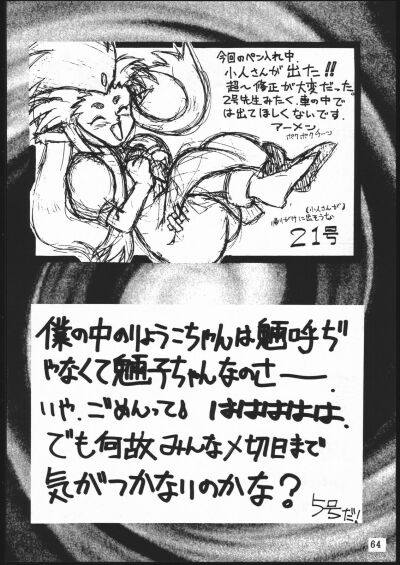 今回のペン入れ中、
小人さんが出た!!
超〜修正が大変だった。
2号先生みたく、車の中で
は出てほしくないです。
アーメン
ポクポクチーン
(小人さんが)
帰りがけに出そうな
21号
僕の中のりょうこちゃんは魎呼ぢ
ゃなくて魎子ちゃんなのさ——.
いや、ごめんって。ははははは.
でも何故みんな〆切日まで
気がつかないのかな?
5号だ!
64